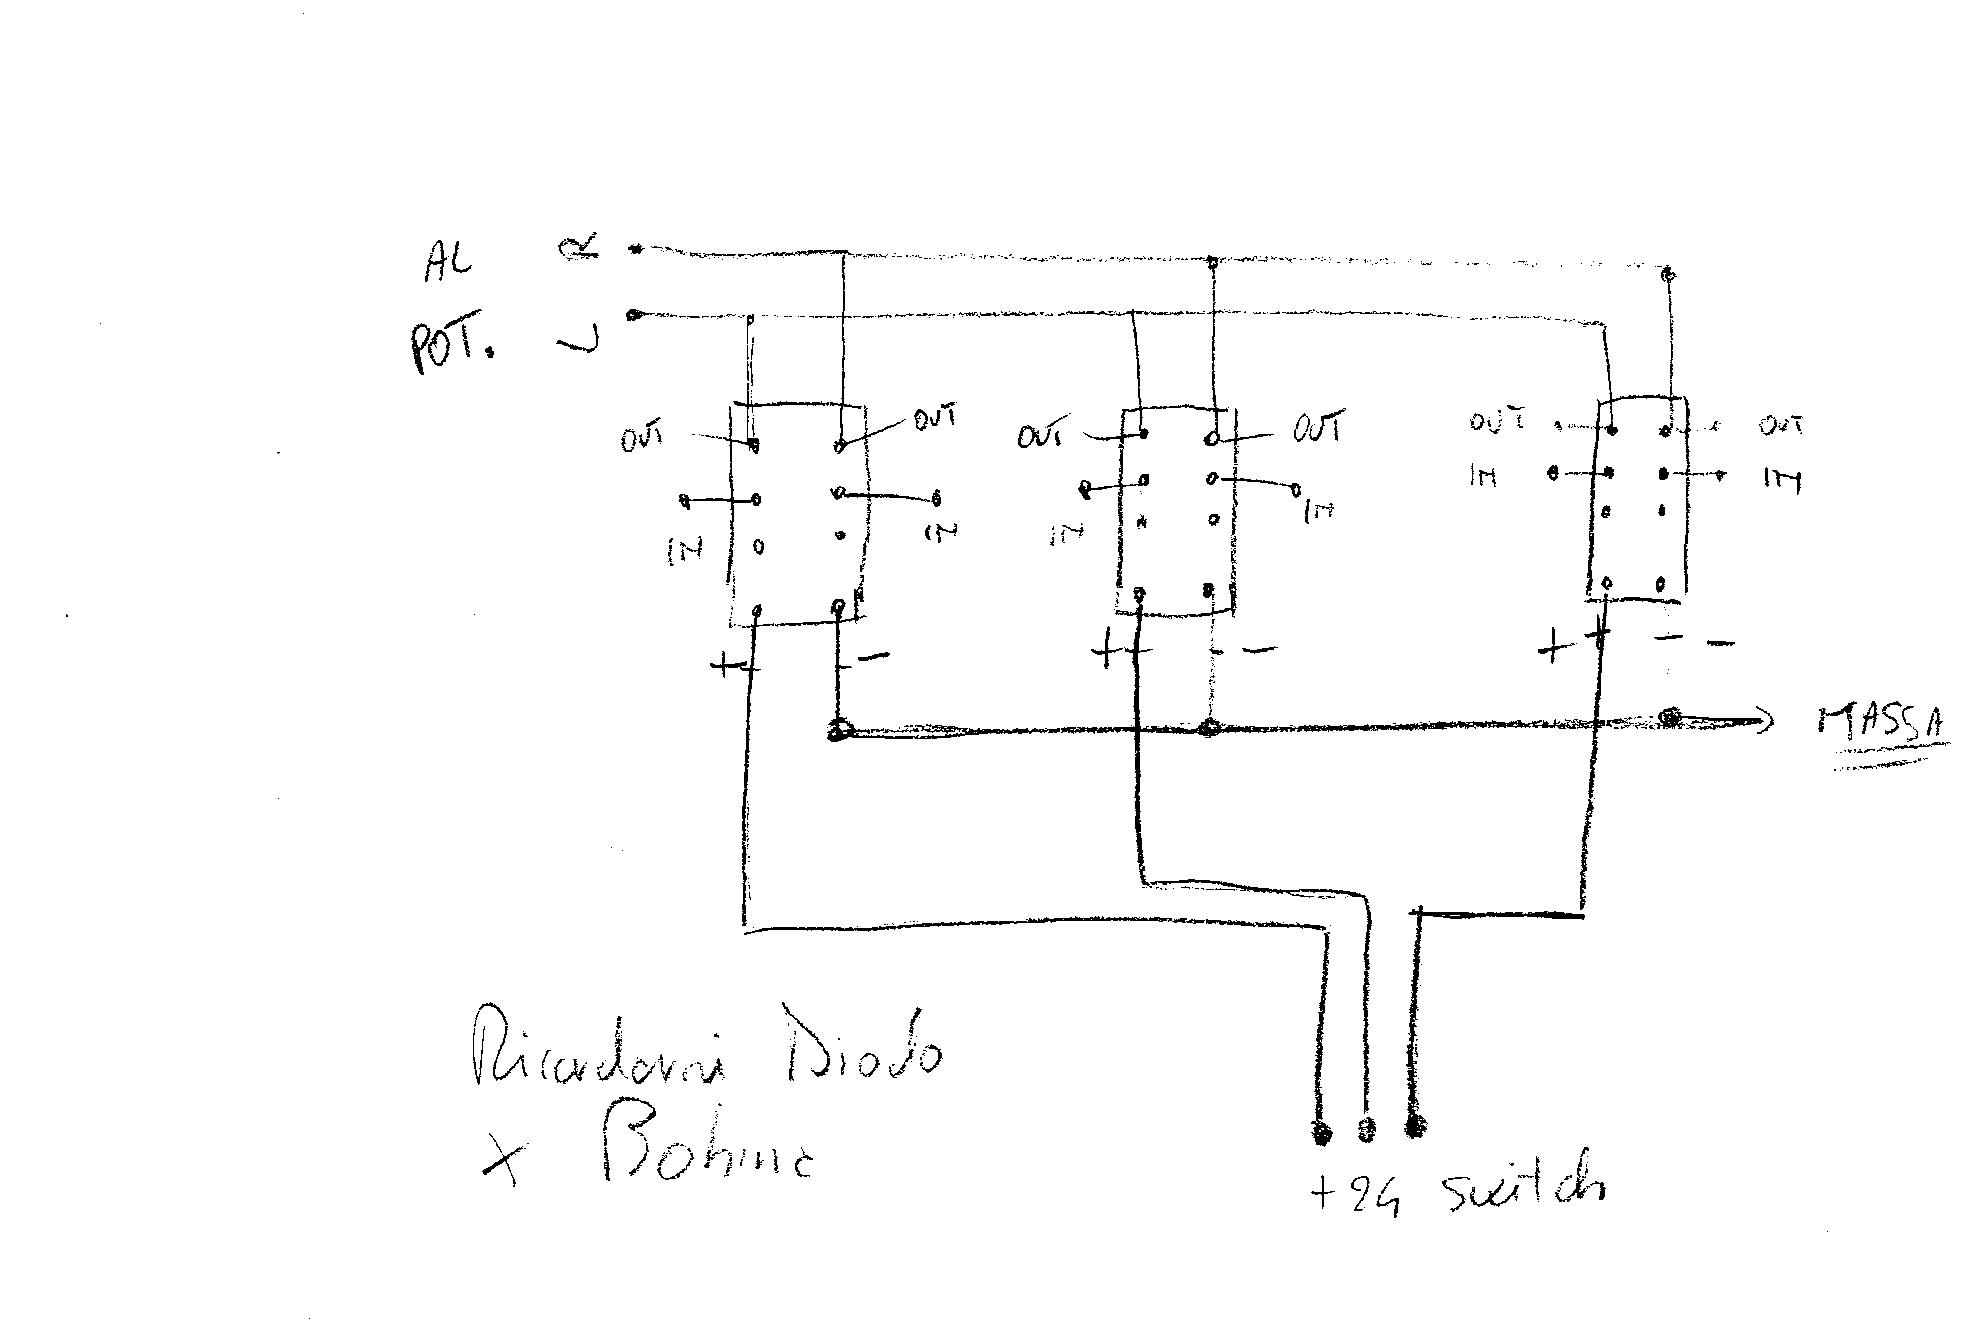 AL R
POT. L
OUT OUT OUT OUT OUT OUT
IN IN
IN IN IN IN
+ - + - + + - -
MASSA
Ricordarmi Diodo
x Bobine
+24 switch